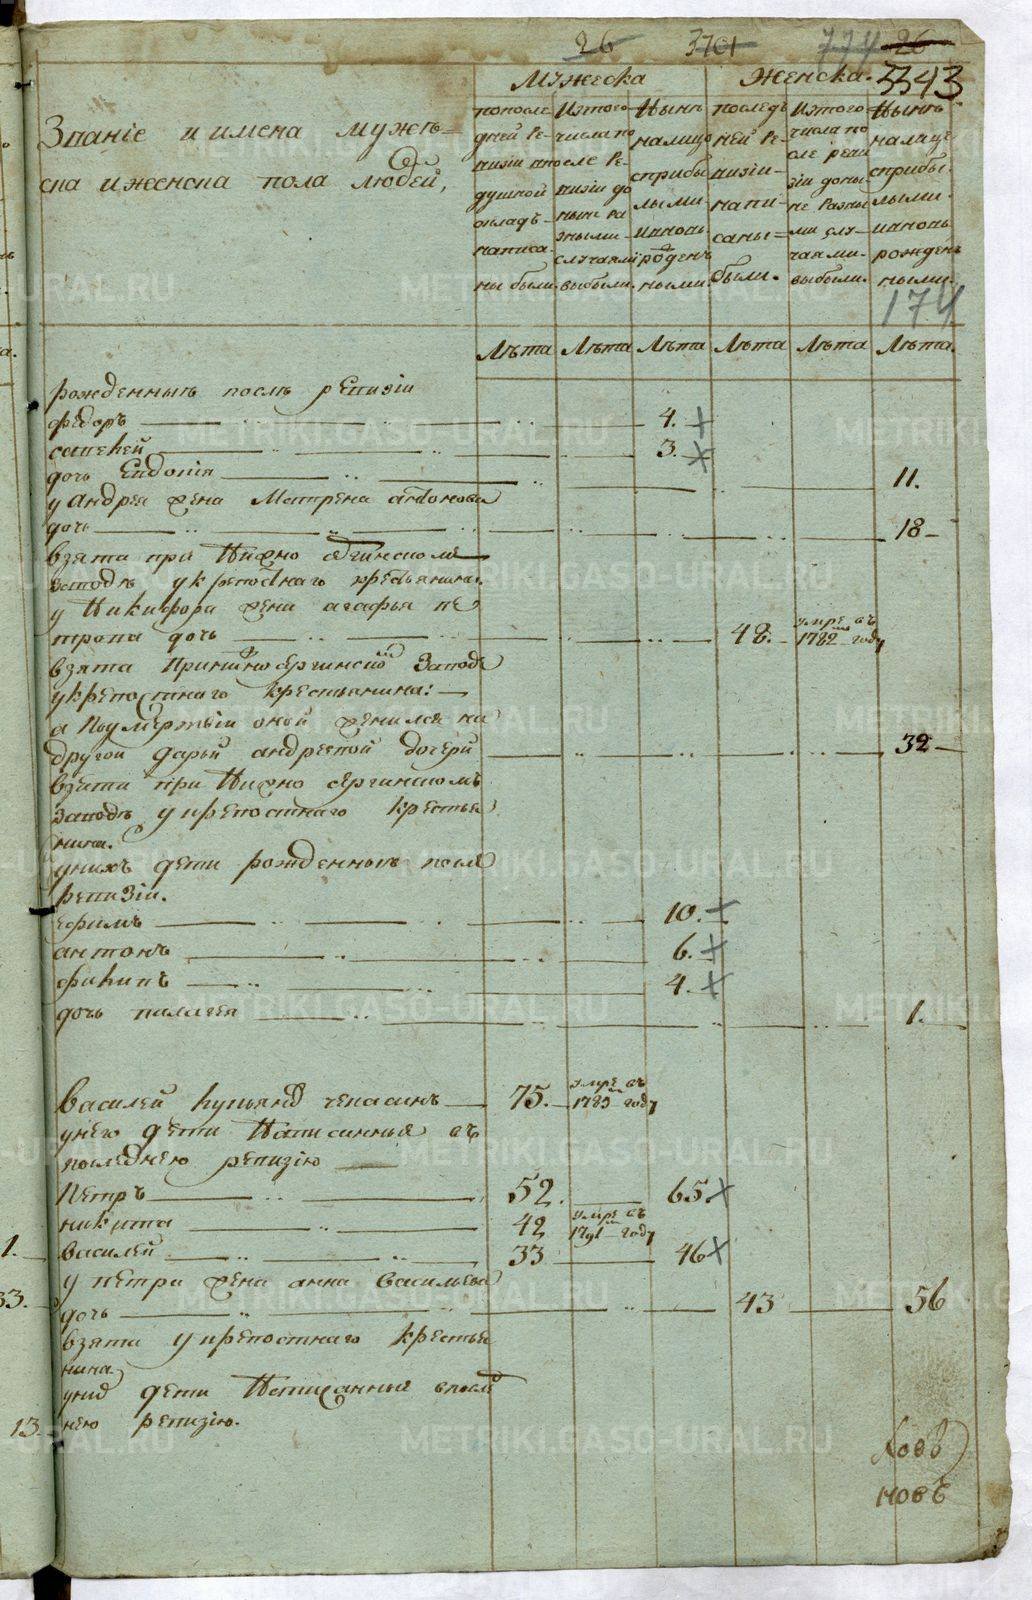 26 3701 774 26
3343
Мужеска Женска.
Званіе и имена мужеъ=
ска и женска пола людей,
пополсе
дней Ре-
визіи в
душной
окладъ
написа-
ны были.
Изтого
числа по
после Ре-
визіи до
ныне ра
зными
случаями
выбыли.
Нынѣ
налицо
сприбы
лыми
ивновь
рожден
ными.
последъ
ней Ре-
визіи-
напи-
саны=
были.
Изтого
числа по
сле реви
зіи доны-
не разны
ми слу-
чаями-
выбыли.
Нынѣ
налице
сприбы.
лыми.
ивновь
рожденъ
ными.
174
Лѣта Лѣта. Лѣта Лѣта Лѣта Лѣта.
рожденныя послѣ ревизіи
Федоръ 4.
савелей 3.
дочь Евдокія 11.
у андрея жена Матрена антонова
дочь 18
взята при Нижно сѣргинскомъ
заводѣ у крепостнаго крестьянина.
у Никифора жена агафья пе
трова дочь 48. умре въ 1782 году
взята Принижносергинской заводе
укрепостнаго крестьянина:
а поумертвіи оной женился на
другой дарьи андреевой дочери 32
взята при Нижно сергинскомъ
заводѣ у крепостнаго крестья
нина.
унихъ дети рожденныя после
ревизіи.
ефимъ 10.
антонъ 6.
филипъ 4.
дочь палагея 1.
Василей купьянов чепасинъ 75. умре въ 1783 году
унего дети Написанныя въ
последнею ревизію
Петръ 52. 65.
никита 42 умре въ 1791 году
Василей 33 46
у петра жена анна васильева
дочь 43 56
взята у крепостнаго крестья
нина
унихъ дети Написанныя впослѣ
нею ревизію.
новъ
1.
33.
13.
METRIKI.GASO-URAL.RU